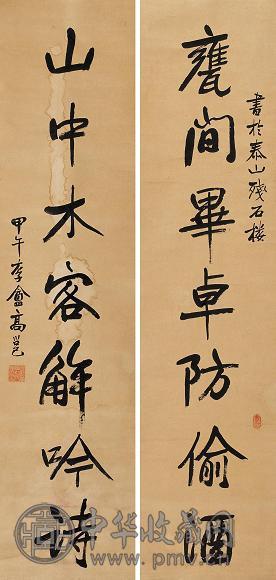 甕間畢卓防偷酒
書於泰山殘石樓
山中木客解吟詩
甲午李盦高邕
中华收藏网